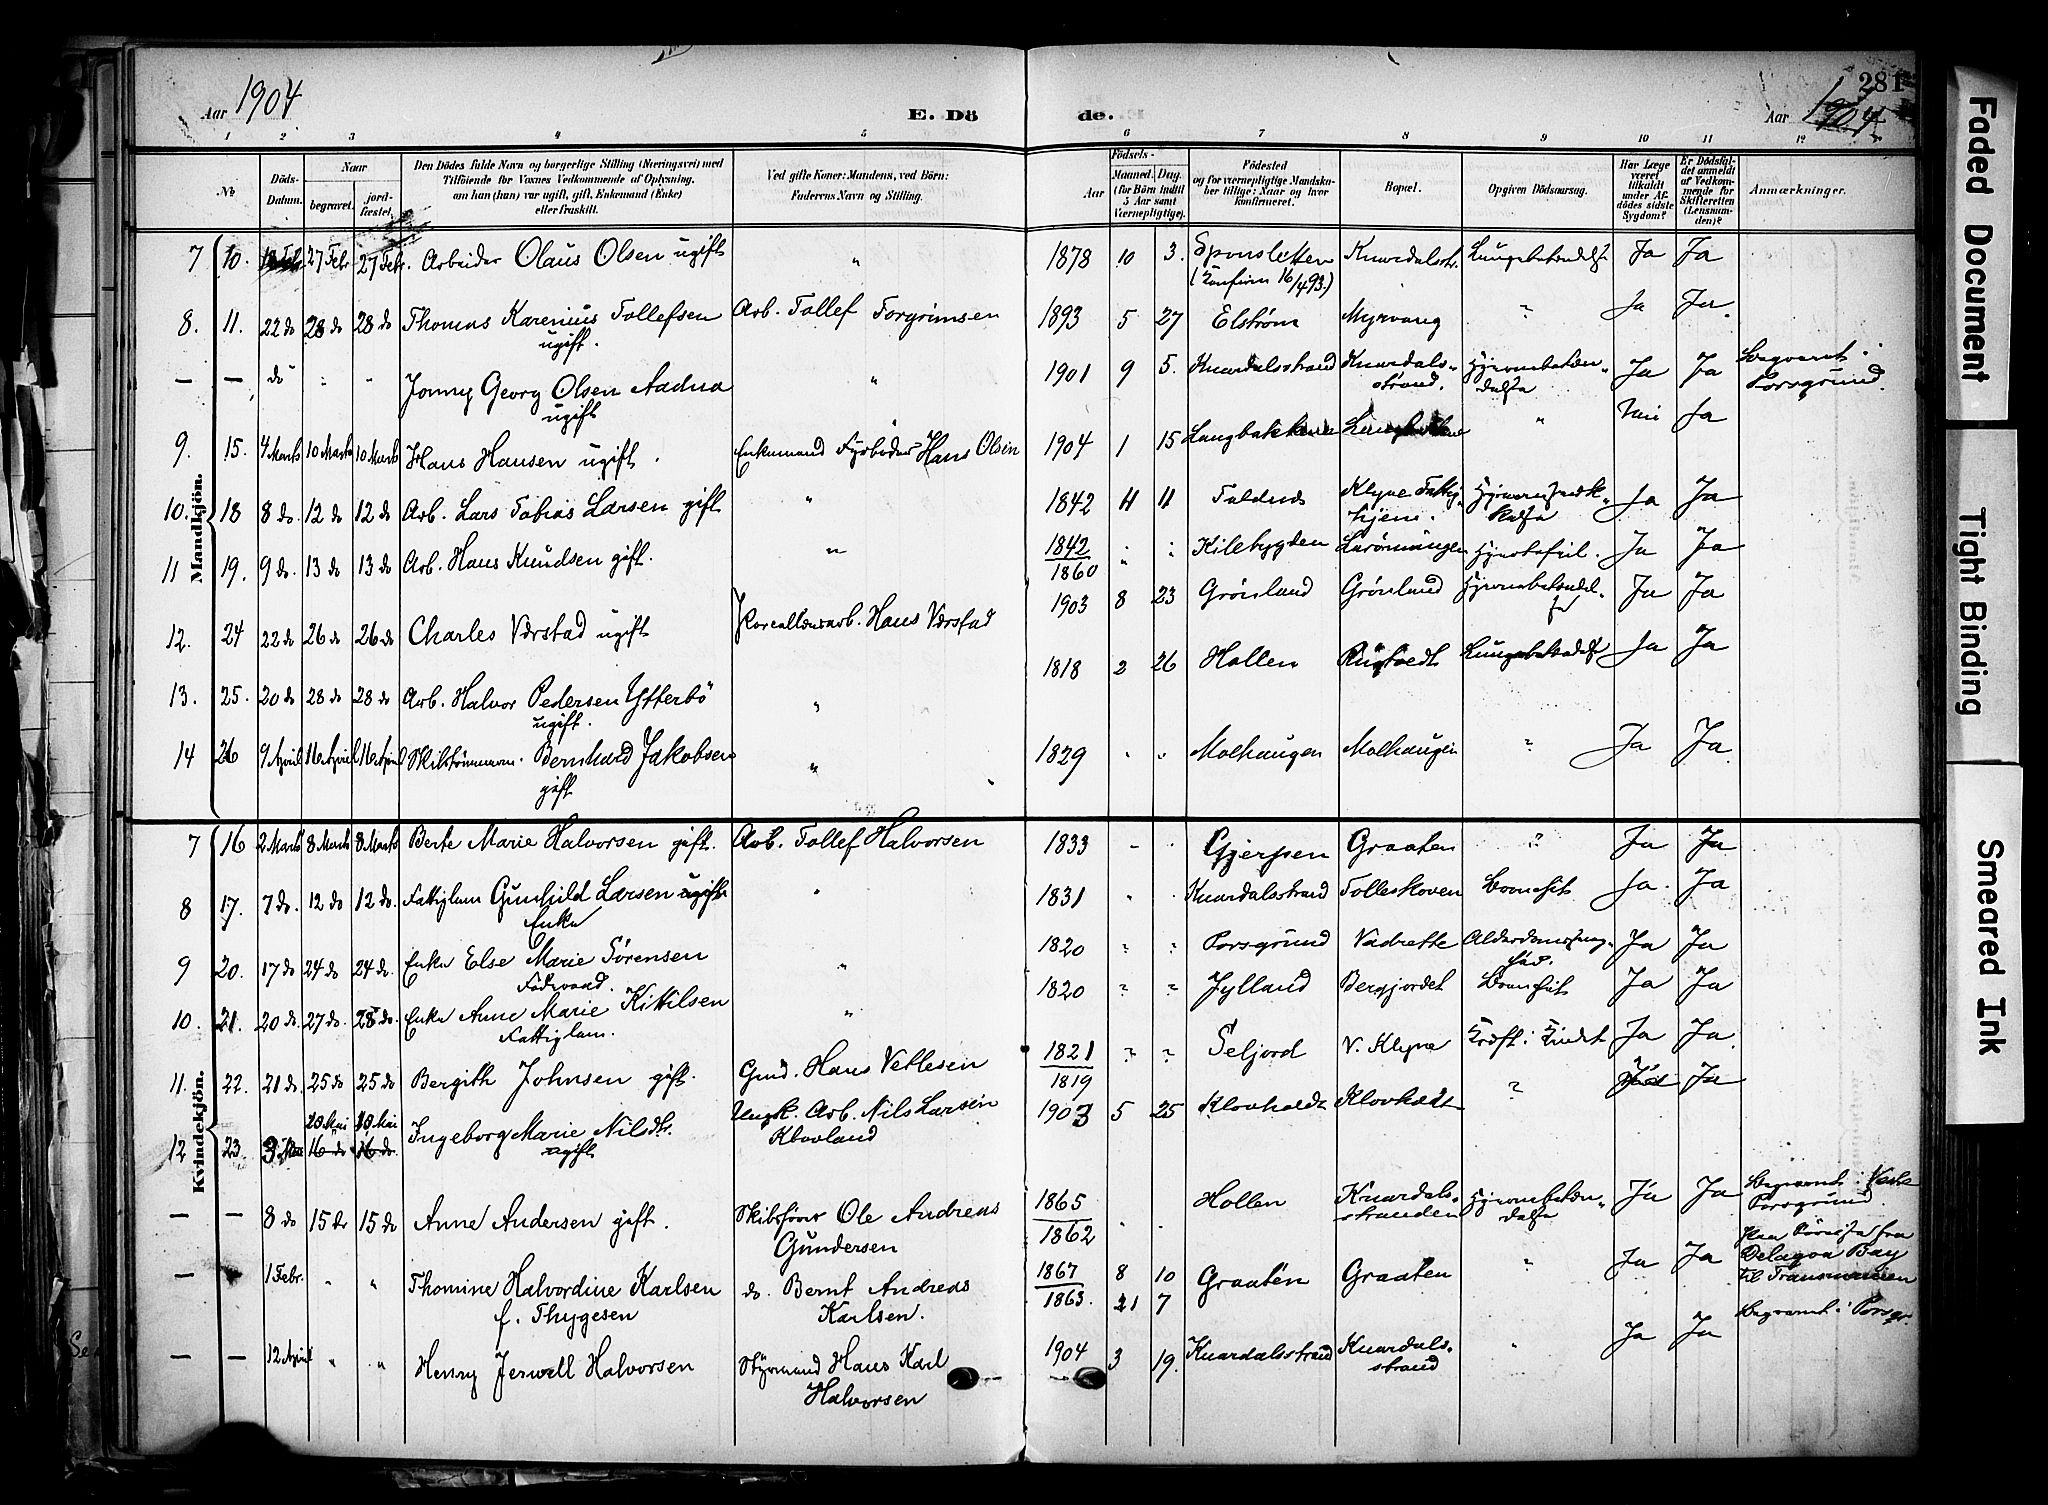 Aar 1904
E. Dö
de.
281
Aar 1904
1 2 3 4 5 6 7 8 9 10 11 12
No
Döds-Datum.
Naar
begravet.
jord-fæstet.
Den Dödes fulde Navn og borgerlige Stilling (Næringsvei) med
Tilföiende for Voxnes Vedkommende af Oplysning,
om han (hun) var ugift, gift, Enkemand (Enke)
eller fraskilt.
Ved gifte Koner: Mandens, ved Börn:
Faderens Navn og Stilling.
Födsels-
Aar
Maaned. (for Börn indtil 5 Aar samt Værnepligtige).
Dag.
Födested
og for værnepligtige Mandska-
ber tillige: Naar og hvor
konfirmeret.
Bopæl.
Opgiven Dödsaarsag.
Har Læge været tilkaldt under Af-dödes sidste Sygdom?
Er Dödsfal-det anmeldt af Vedkom-mende for Skifteretten (Lensman-den)?
Anmærkninger.
Mandkjön.
7 10. 27 Febr 27 Febr. Arbeider Olaus Olsen ugift " 1878 10 3. Knardalsstr. Lungebetændelse Ja Ja
(Konfirm 16/4 93.)
8. 11. 22 do 28 do 28 do Thomas Karenius Tollefsen Arb. Tollef Torgrimsen 1893 5 27 Elstrøm Myrvang " Ja Ja.
ugift.
— — do " " Jonny Georg Olsen Aadna " 1901 9 5. Knardalsstrand Knardals- Hjernebetæn- Ja Ja Begravet i
ugift strand. delse Porsgrund.
9. 15. 4 Marts 10 Marts 10 Marts Hans Hansen ugift. Enkemand Fyrbøder Hans Olsen 1904 1 15 Langbakkene Langbakkene " Nei Ja
10. 18 8 do. 12 do 12 do Arb. Lars Tobias Larsen gift " 1842 11 11 Klyve Fattig-
hjem.
Ja Ja
11 19. 9 do. 13 do 13 do Arb. Hans Knudsen gift. " 1842/1860 " " Kilebygden Hjertefeil. Ja Ja
12. 24 22 do 26 do 26 do Charles Værstad ugift Porcellænsarb. Hans Værstad 1903 8 23 Grönland Grönland Hjernebetændel-
se Ja Ja
13. 25. 20 do 28 do 28 do Arb. Halvor Pedersen Ytterbö " 1818 2 26 Hollen Lungebetændelse Ja Ja
ugift.
14 26 9 April 16 April 16 April Skibstømmerm. Bernhard Jakobsen " 1829 " " Molhaugen Molhaugen " Ja Ja.
gift
Kvindekjön.
7 16 2 Marts 8 Marts 8 Marts Berte Marie Halvorsen gift. Arb. Tollef Halvorsen 1833 - " Gjerpen Graaten " Ja Ja
8 17. 7 do. 12 do 12 do. Fattiglem Gunhild Larsen ugift " 1831 " " Knardalsstrand Tolleskoven Bronchit Ja. Ja
Enke
9 20. 17 do 24 do 24 do. Enke Else Marie Sørensen " 1820 " " Porsgrund Vadrette Ja Ja
Föderaad.
10. 21. 20 do. 27 do. 28 do. Enke Anne Marie Kittilsen " 1820 " " Jylland Bergjordet Bronchit Ja Ja
Fattiglem.
11. 22. 21 do. 25 do 25 do. Bergith Johnsen gift. Gmd. Hans Vetlesen 1821/1819 " " Seljord V. Klyve Kræft i Kindet Ja Ja.
12 23. 3 Mai 10 Mai 10 Mai
16 do 16 do Ingeborg Marie Nilsdt. Ungk. Arb. Nils Larsen 1903 5 25 Klovholdt Klovholdt " Ja
ugift Klovland
— — 8 do 15 do 15 do Anne Andersen gift. Skibsfører Ole Andreas 1865/1862 " " Hollen Knardals- Hjernebetæn- Ja Ja Begravet i Vestre
Gundersen stranden delse Porsgrund.
— 1 Febr. " " Thomine Halvordine Karlsen do. Bernt Andreas 1867/1863. 8 10 Graaten Graaten " Ja Ja Paa Reise fra
f. Thygesen Karlsen. 21 7 Delagoa Bay
til
— — 12 April " " Henry Jerwell Halvorsen Styrmand Hans Karl 1904 3 19. Knardalsstrand Knardals- " Ja Ja Begravet i Porsgr.
Halvorsen strand
Faded Document
Tight Binding
Smeared Ink